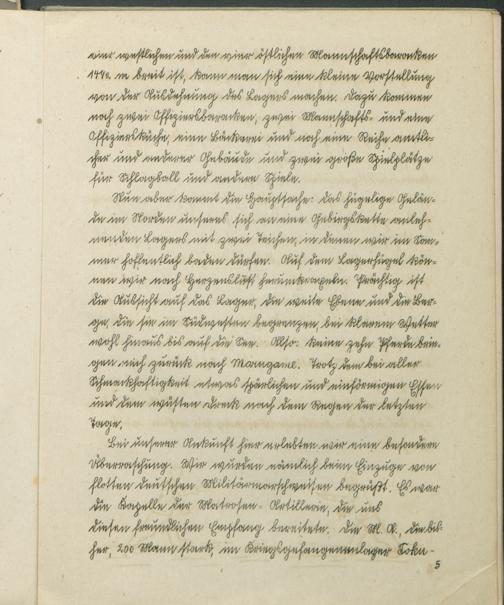 vier westlichen und den vier östlichen Mannschaftsbaracken
m breit ist, kann man sich eine kleine Vorstellung
von der Ausdehnung des Lagers machen. Dazu kommen
noch zwei Offiziersbaracken, zwei Mannschafts- und eine
Offiziersküche, eine Bäckerei und noch eine Reihe amtli-
cher und anderer Gebäude und zwei große Spielplätze
für Schlagball und andere Spiele.
Nun aber kommt die Hauptsache: das hügelige Gelän-
de im Norden unseres sich an eine Gebirgskette anleh-
nenden Lagers mit zwei Teichen, in denen wir im Som-
mer hoffentlich baden dürfen. Auf dem Lagerhügel kön-
nen wir nach Herzenslust herumkraxeln. Prächtig ist
die Aussicht auf das Lager, die weite Ebene und die Ber-
ge, die sie im Südwesten begrenzen, bei klarem Wetter
wohl hinaus bis auf die See. Also: keine zehn Pferde brin-
gen mich zurück nach Marugame. Trotz dem bei aller
Schmackhaftigkeit etwas spärlichen und einförmigen Essen
und dem wüsten Dreck nach dem Regen der letzten
Tage.
Bei unserer Ankunft hier erlebten wir eine besondere
Überraschung. Wir wurden nämlich beim Einzuge von
flotten deutschen Militärmarschweisen begrüßt. Es war
die Kapelle der Matrosen-Artillerie, die uns
diesen freundlichen Empfang bereitete. Die M. A., die bis-
her, 200 Mann stark, im Kriegsgefangenenlager Toku-
5